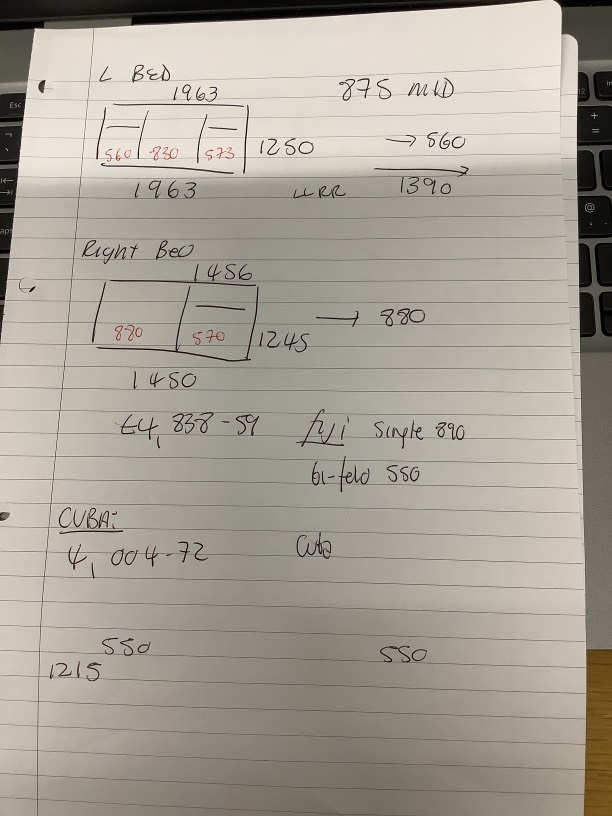 L BED
1963 875 MID
560 830 573 1250 → 560
1963 LLRR 1390
Right Bed
1456
880 570 1245 → 880
1450
£4,838-59 fyi Single 890
bi-fold 550
CUBA:
4,004-72 Cuba
550 550
1215
Esc